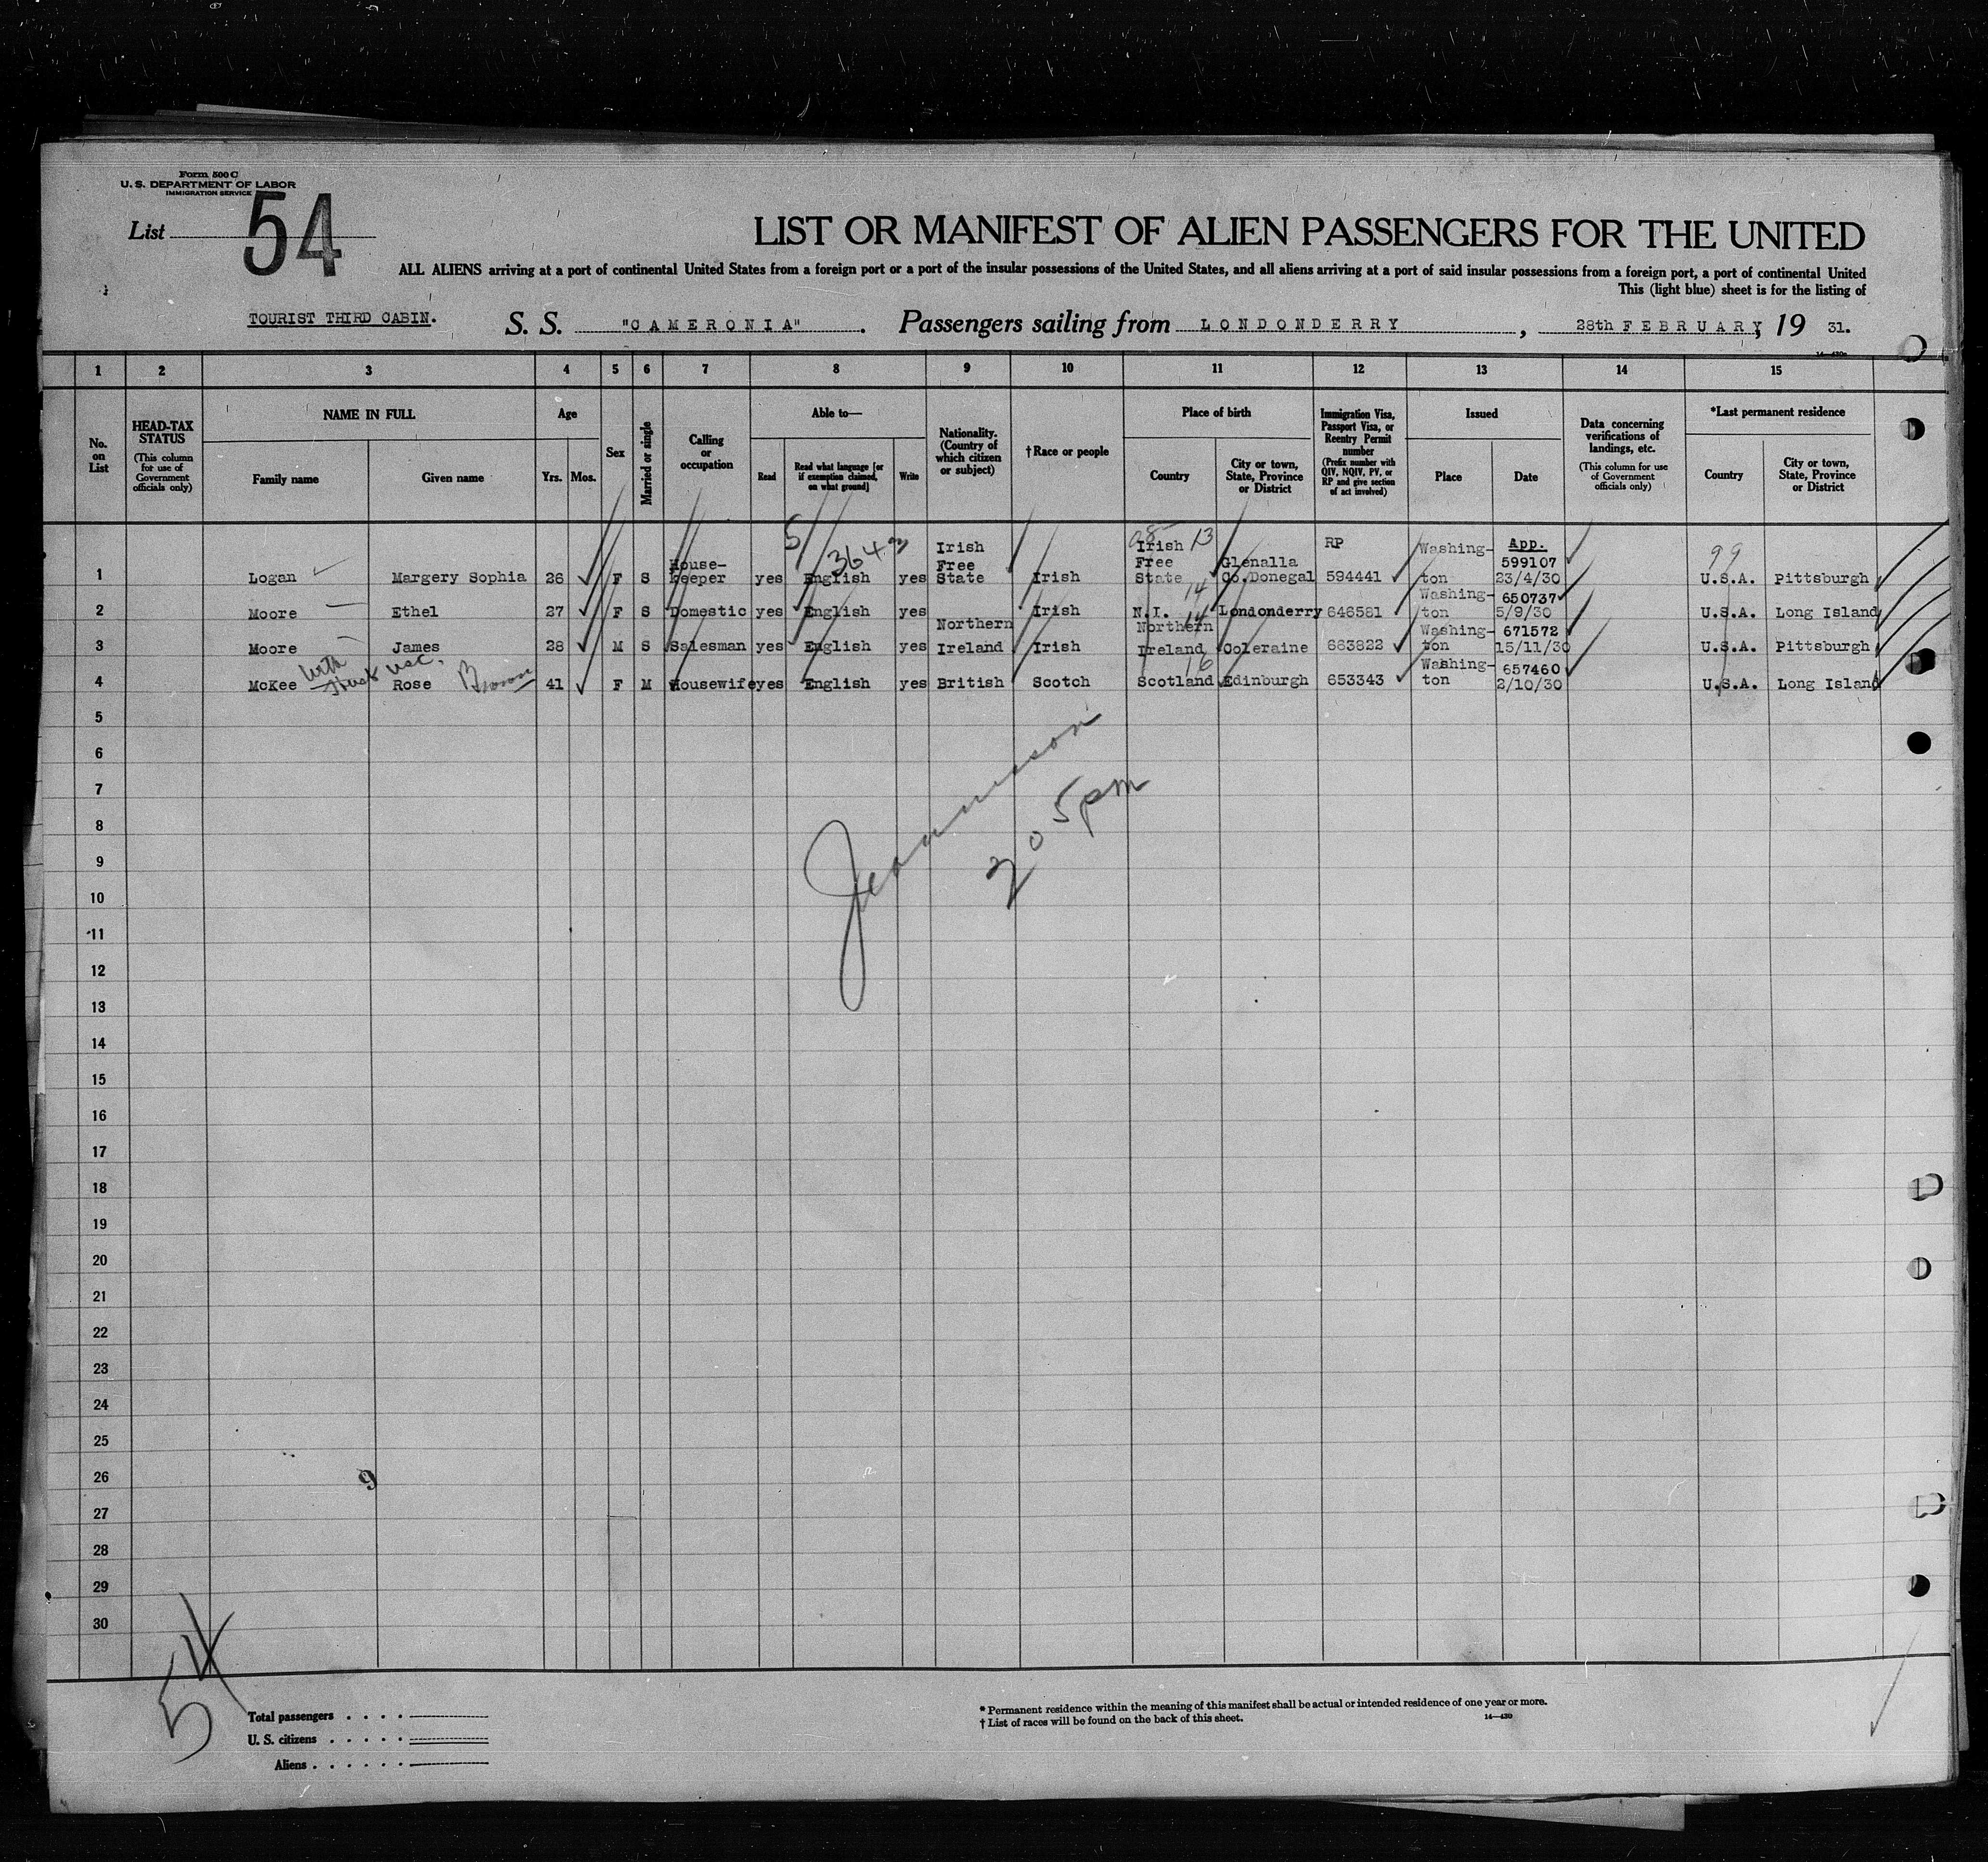 Form 500 C
U. S. DEPARTMENT OF LABOR
IMMIGRATION SERVICE
List 54
LIST OR MANIFEST OF ALIEN PASSENGERS FOR THE UNITED
ALL ALIENS arriving at a port of continental United States from a foreign port or a port of the insular possessions of the United States, and all aliens arriving at a port of said insular possessions from a foreign port, a port of continental United
This (light blue) sheet is for the listing of
TOURIST THIRD CABIN. S. S. "CAMERONIA". Passengers sailing from LONDONDERRY, 28th FEBRUARY, 19 31.
14—430a
1 2 3 4 5 6 7 8 9 10 11 12 13 14 15
No. on List
HEAD-TAX STATUS
(This column for use of Government officials only)
NAME IN FULL
Family name
Given name
Age
Yrs. Mos.
Sex
Married or single
Calling or occupation
Able to—
Read
Read what language [or if exemption claimed, on what ground]
Write
Nationality. (Country of which citizen or subject)
†Race or people
Place of birth
Country
City or town, State, Province or District
Immigration Visa, Passport Visa, or Reentry Permit number
(Prefix number with QIV, NQIV, PV, or RP and give section of act involved)
Issued
Place
Date
Data concerning verifications of landings, etc.
(This column for use of Government officials only)
*Last permanent residence
Country
City or town, State, Province or District
5 364 08 13 99
1 Logan Margery Sophia 26 F S House-keeper yes English yes Irish Free State Irish Irish Free State Glenalla Co.Donegal RP 594441 Washing-ton App. 599107 23/4/30 U.S.A. Pittsburgh
14
2 Moore Ethel 27 F S Domestic yes English yes Irish N.I. Londonderry 646581 Washing-ton 650737 5/9/30 U.S.A. Long Island
14
3 Moore James 28 M S Salesman yes English yes Northern Ireland Irish Northern Ireland Coleraine 663822 Washing-ton 671572 15/11/30 U.S.A. Pittsburgh
With Husb USC. 16
4 McKee Rose 41 F M Housewife yes English yes British Scotch Scotland Edinburgh 653343 Washing-ton 657460 2/10/30 U.S.A. Long Island
5
6
7
2 05 pm
8
9
10
11
12
13
14
15
16
17
18
19
20
21
22
23
24
25
26
9
27
28
29
30
54
Total passengers . . . .
U. S. citizens . . . . .
Aliens . . . . . .
* Permanent residence within the meaning of this manifest shall be actual or intended residence of one year or more.
† List of races will be found on the back of this sheet.
14—430